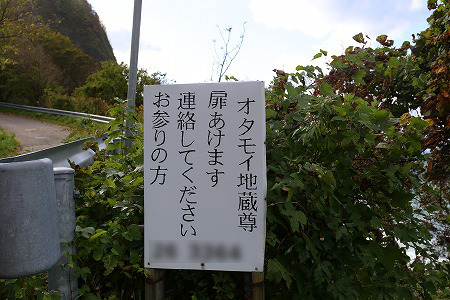 オタモイ地蔵尊
扉あけます
連絡してください
お参りの方